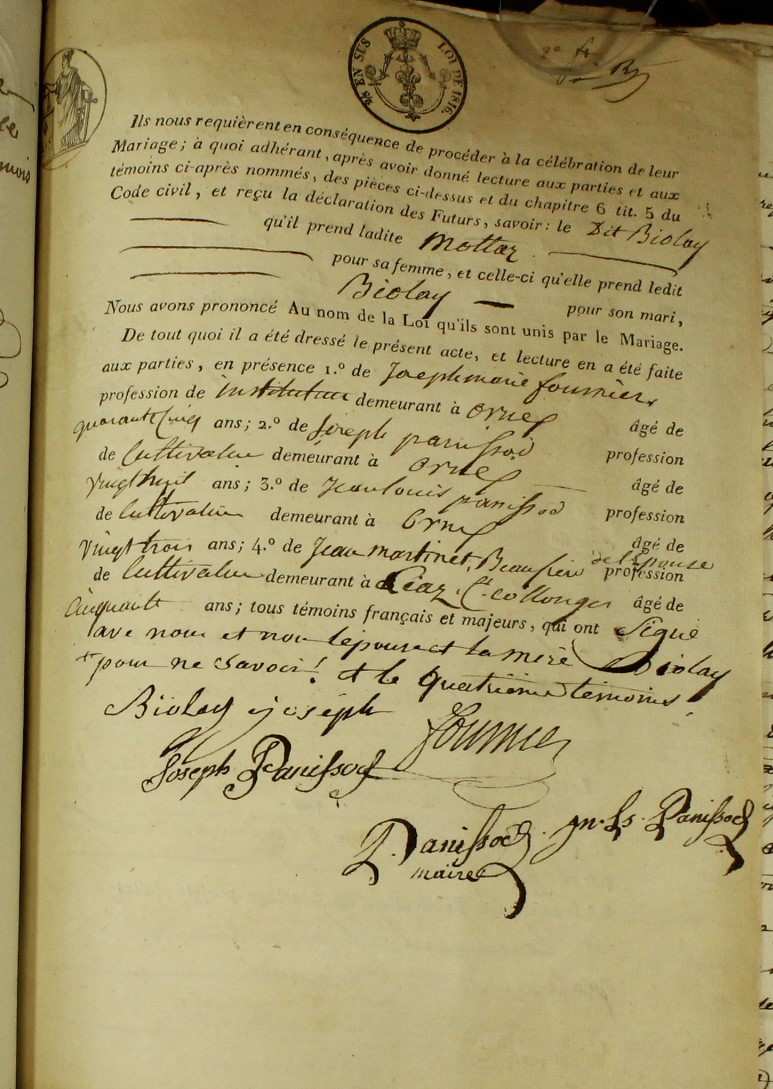 LOI DE 1816.
Ils nous requièrent en conséquence de procéder à la célébration de leur
Mariage; à quoi adhérant, après avoir donné lecture aux parties et aux
témoins ci-après nommés, des pièces ci-dessus et du chapitre 6 tit. 5 du
Code civil, et reçu la déclaration des Futurs, savoir: le Dit Biolay
qu'il prend ladite Mottaz
pour sa femme, et celle-ci qu'elle prend ledit
Biolay pour son mari,
Nous avons prononcé Au nom de la Loi qu'ils sont unis par le Mariage.
De tout quoi il a été dressé le présent acte, et lecture en a été faite
aux parties, en présence 1.º de Joseph marie fournier
profession de instituteur demeurant à Ornex âgé de
quarante Cinq ans; 2.º de joseph panissod profession
de Cultivateur demeurant à Ornex âgé de
Vingt huit ans; 3.º de Jean louis panissod profession
de Cultivateur demeurant à Ornex âgé de
Vingt trois ans; 4.º de Jean martinet, Beau frère de l'Epouse profession
de Cultivateur demeurant à Leaz, Cⁿ Collonges âgé de
Cinquante ans; tous témoins français et majeurs, qui ont Signé
avec nous et non l'épouse et la mère Biolay
pour ne Savoir! et le quatrième témoins.
Biolay joséph
fournier
Joseph Panissod
jn. Ls. Panissod
Panissod
maire